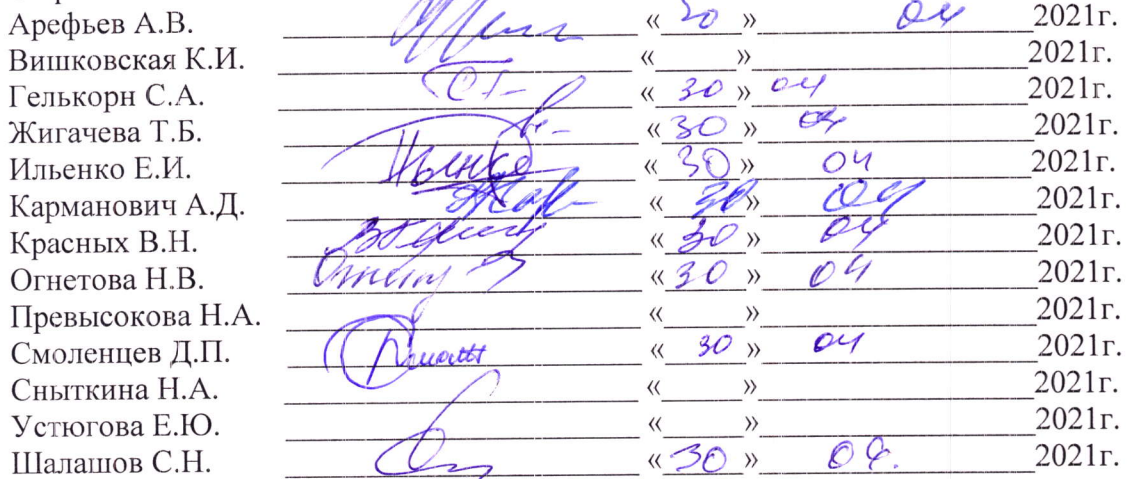 Арефьев А.В. «30» 04 2021г.
Вишковская К.И. « » 2021г.
Гелькорн С.А. «30» 04 2021г.
Жигачева Т.Б. «30» 04 2021г.
Ильенко Е.И. «30» 04 2021г.
Карманович А.Д. «30» 04 2021г.
Красных В.Н. «30» 04 2021г.
Огнетова Н.В. «30» 04 2021г.
Превысокова Н.А. « » 2021г.
Смоленцев Д.П. «30» 04 2021г.
Сныткина Н.А. « » 2021г.
Устюгова Е.Ю. « » 2021г.
Шалашов С.Н. «30» 04. 2021г.